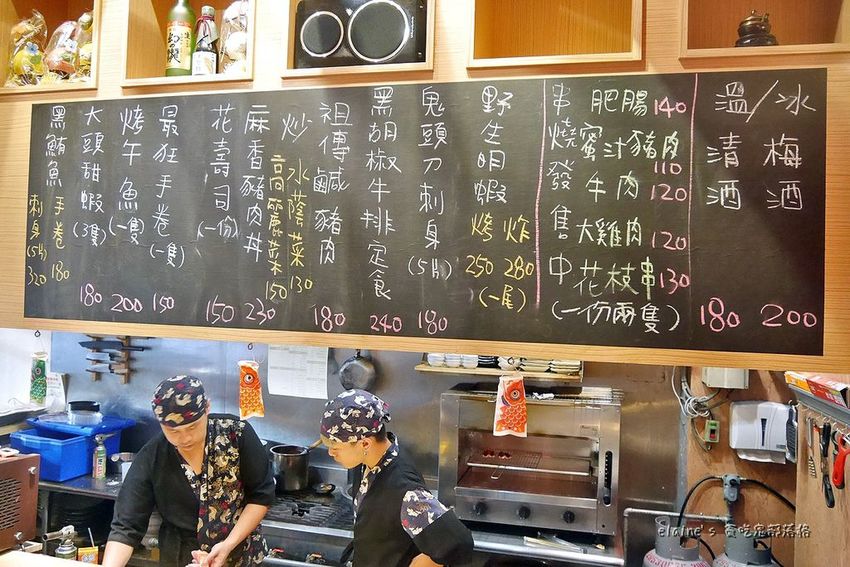 溫/冰
清 梅
酒 酒
180 200
串燒發售中
肥腸140
蜜汁豬肉110
牛肉120
大雞肉120
花枝串130
(一份兩隻)
野生明蝦
烤 炸
250 280
(一尾)
鬼頭刀刺身(5片)
180
黑胡椒牛排定食
240
祖傳鹹豬肉
180
炒 水蓮菜 130
高麗菜 150
麻香豬肉丼
230
花壽司(一份)
150
最狂手卷(一隻)
150
烤午魚(一隻)
200
大頭甜蝦(3隻)
180
黑鮪魚 手卷 180
刺身(5片) 320
elaine's 貪吃鬼部落格